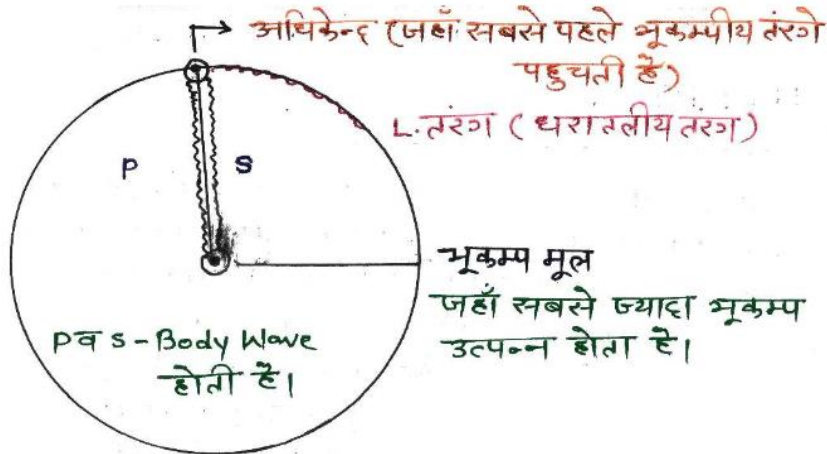 अधिकेन्द्र (जहाँ सबसे पहले भूकम्पीय तंरगे
पहुचती है)
L. तरंग ( धरातलीय तरंग)
P
S
भूकम्प मूल
जहाँ सबसे ज्यादा भूकम्प
उत्पन्न होता है।
P व S - Body Wave
होती है।